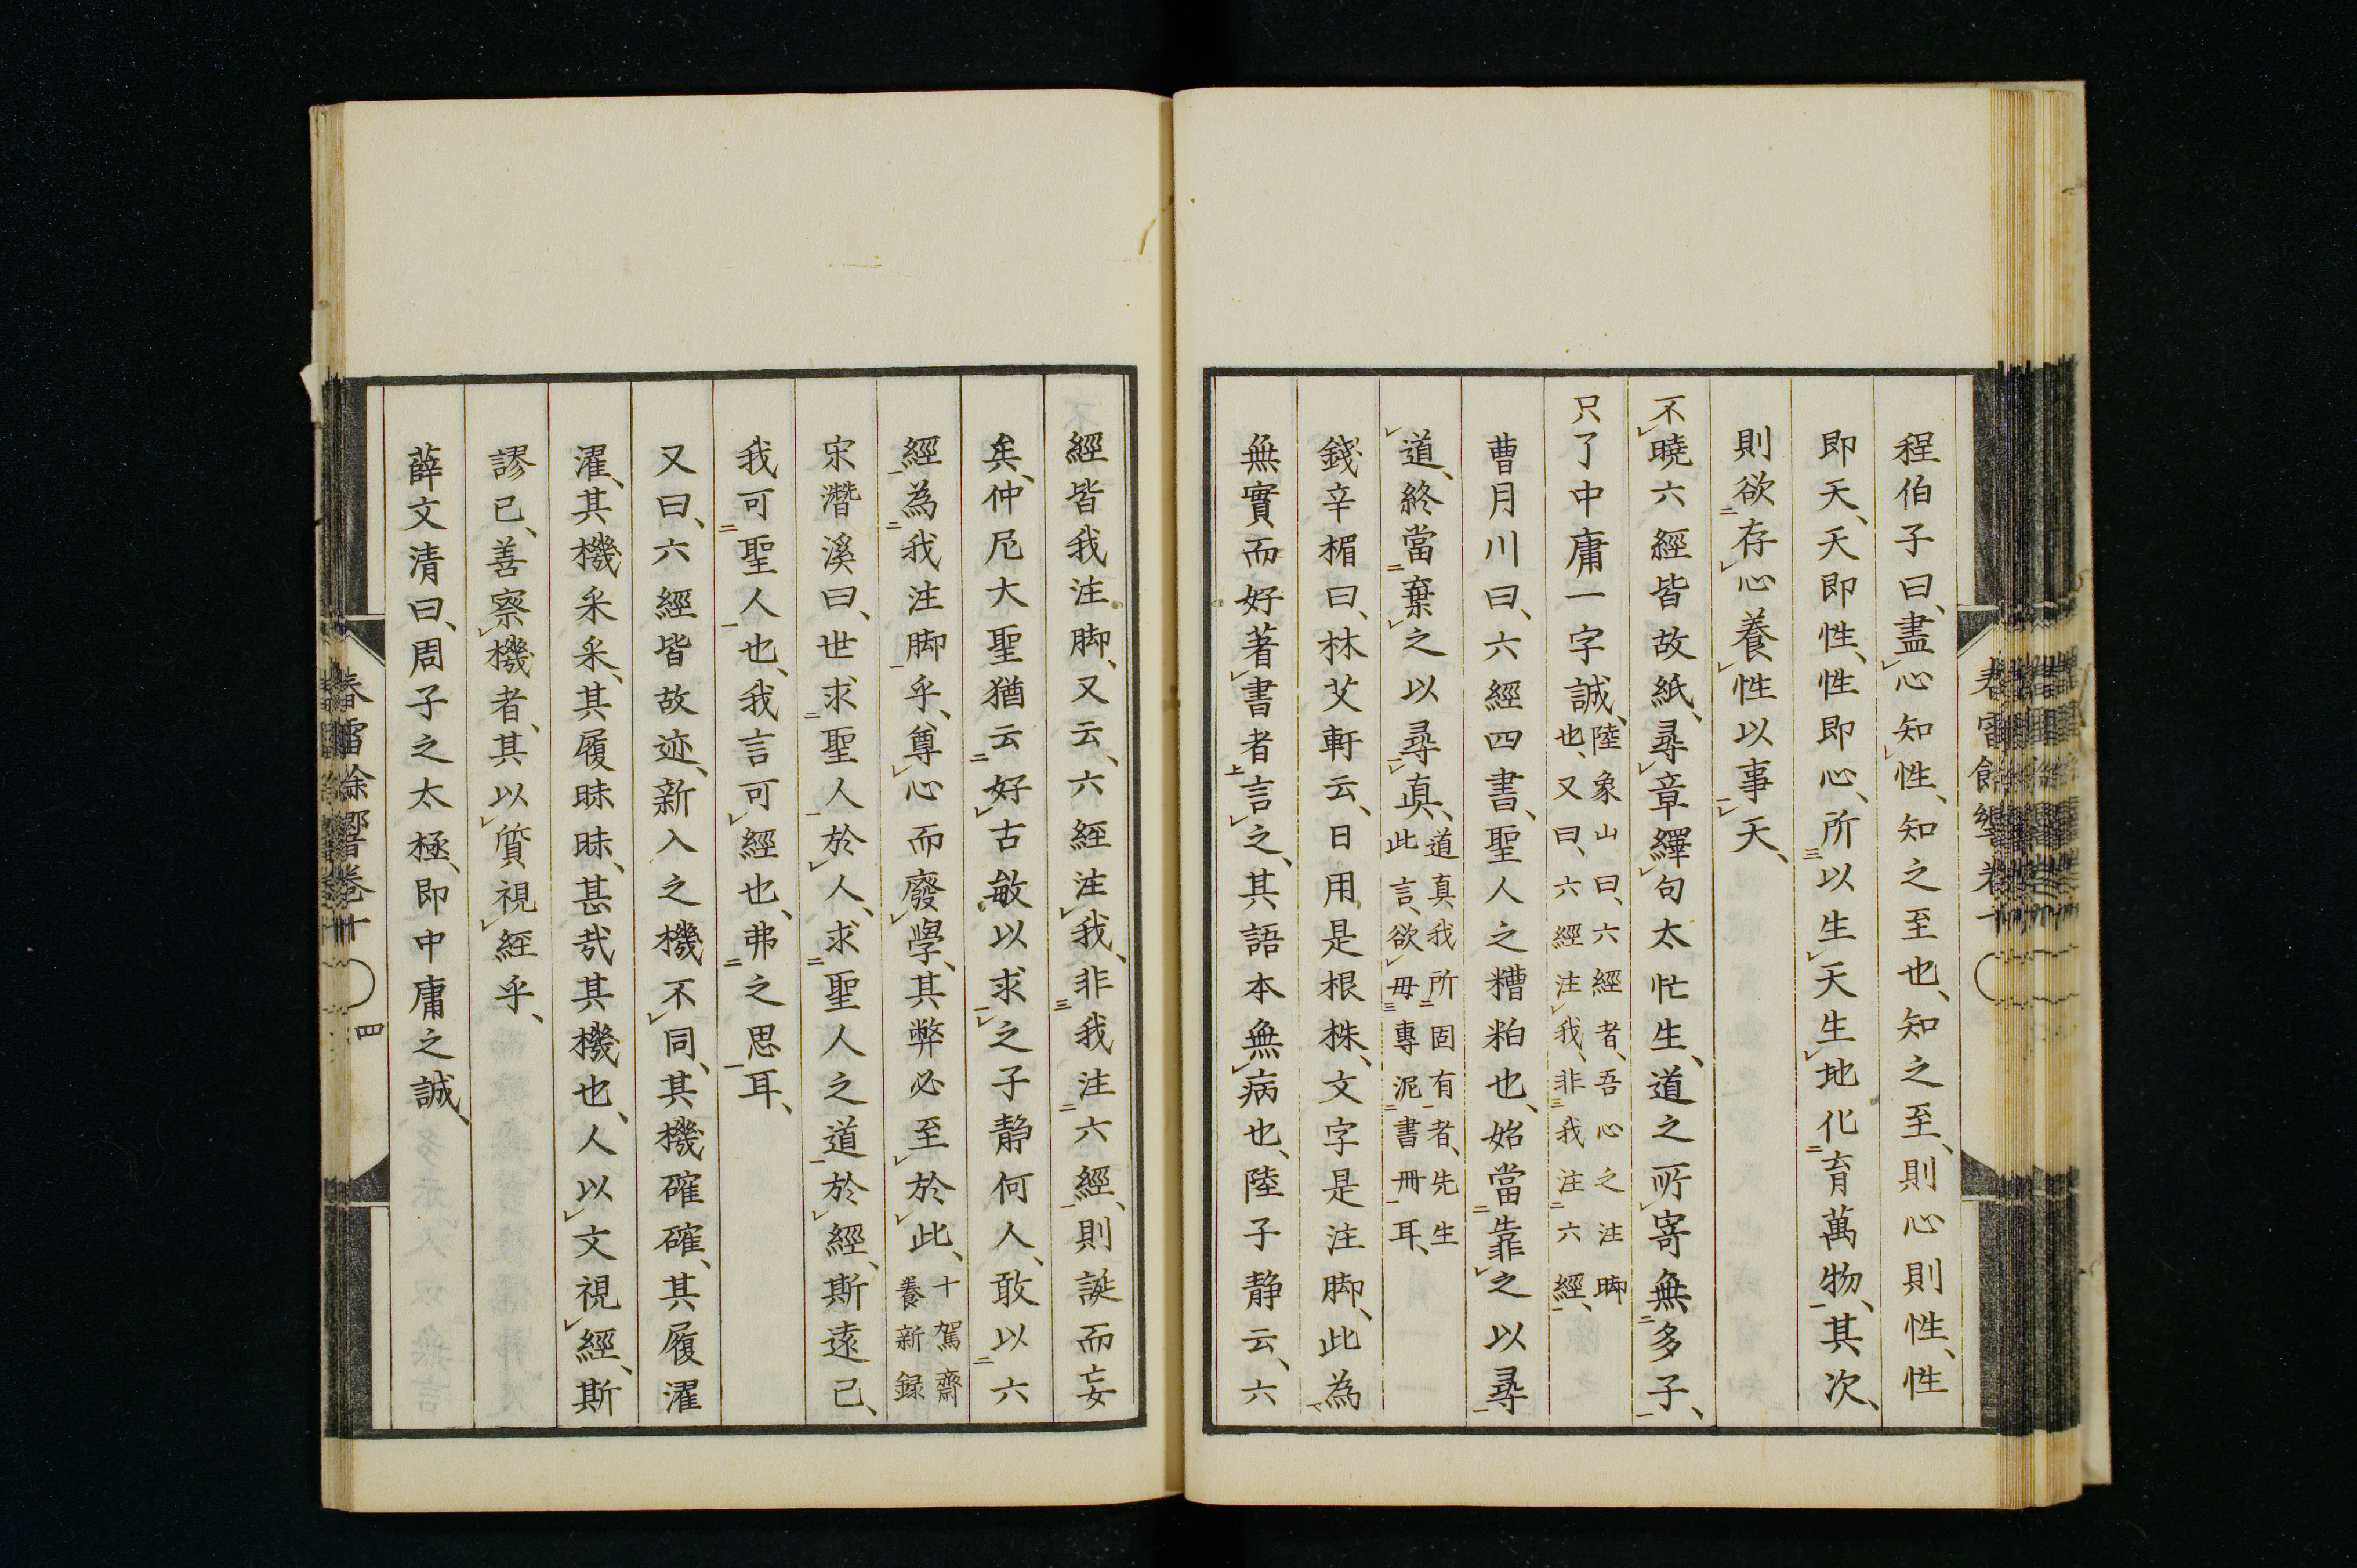 程伯子曰、盡心知性、知之至也、知之至、則心則性、性
即天、天即性、性即心、所以生天生地化育萬物、其次、
則欲存心養性以事天、
不曉六經皆故紙、尋章繹句太忙生、道之所寄無多子、
只了中庸一字誠、陸象山曰、六經者、吾心之注脚
也、又曰、六經注我、非我注六經、
曹月川曰、六經四書、聖人之糟粕也、始當靠之以尋
道、終當棄之以尋真、道真我所固有者、先生
此言、欲毋專泥書冊耳、
錢辛楣曰、林艾軒云、日用是根株、文字是注脚、此為
無實而好著書者言之、其語本無病也、陸子靜云、六
經皆我注脚、又云、六經注我、非我注六經、則誕而妄
矣、仲尼大聖猶云好古敏以求之子靜何人、敢以六
經為我注脚乎、尊心而廢學、其弊必至於此、十駕齋
養新録
宋潛溪曰、世求聖人於人、求聖人之道於經、斯遠己、
我可聖人也、我言可經也、弗之思耳、
又曰、六經皆故迹、新入之機不同、其機確確、其履濯
濯、其機采采、其履昧昧、甚哉其機也、人以文視經、斯
謬已、善察機者、其以質視經乎、
薛文清曰、周子之太極、即中庸之誠、
春雷餘響卷十
四